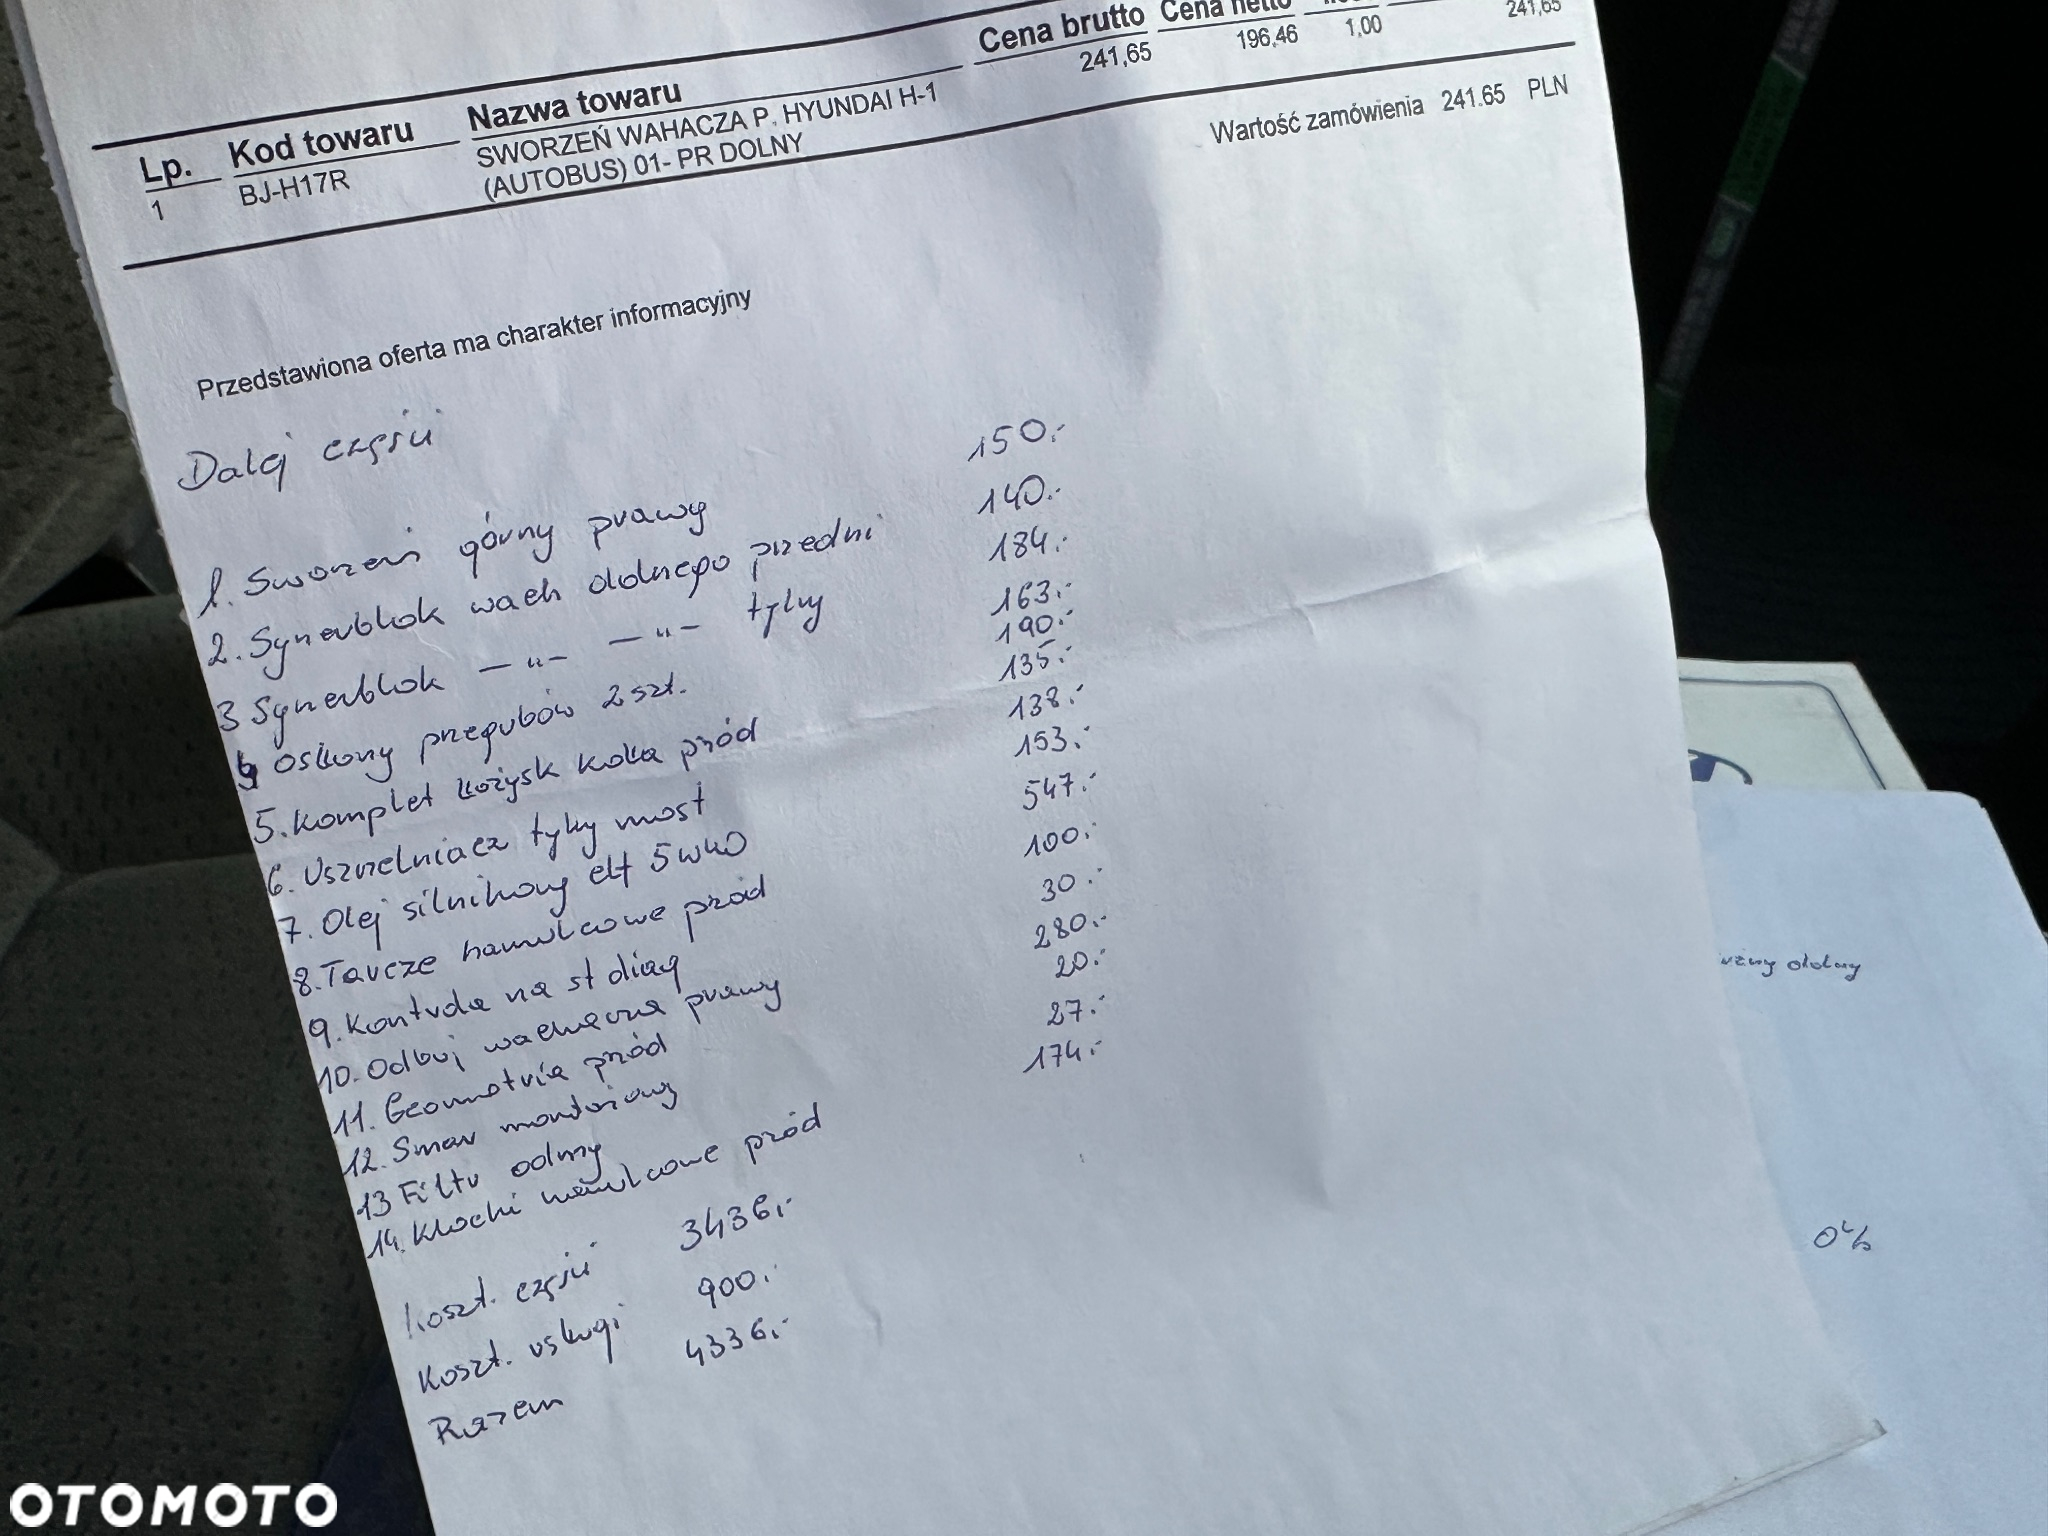 Lp. Kod towaru Nazwa towaru Cena brutto Cena netto
1 BJ-H17R SWORZEŃ WAHACZA P. HYUNDAI H-1 241,65 196,46 1,00 241,65
(AUTOBUS) 01- PR DOLNY
Wartość zamówienia 241.65 PLN
Przedstawiona oferta ma charakter informacyjny
Dalej części
1. Sworzeń górny prawy 150.-
2. Synerblok wach dolnego przedni 140.-
3 Synerblok —"— —"— tylny 184.-
4 Osłony przegubów 2 szt. 163.-
5. Komplet łożysk koła przód 190.-
6. Uszczelniacz tylny most 135.-
7. Olej silnikowy elf 5W40 138.-
8. Tarcze hamulcowe przód 153.-
9. Kontrola na st diag 547.-
10. Odbój wachacza prawy 100.-
11. Geometria przód 30.-
12. Smar montażowy 280.-
13 Filtr odmy 20.-
14. Klocki hamulcowe przód 27.-
174.-
Koszt. części 3436.-
Koszt. usługi 900.-
Razem 4336.-
dolny
OTOMOTO